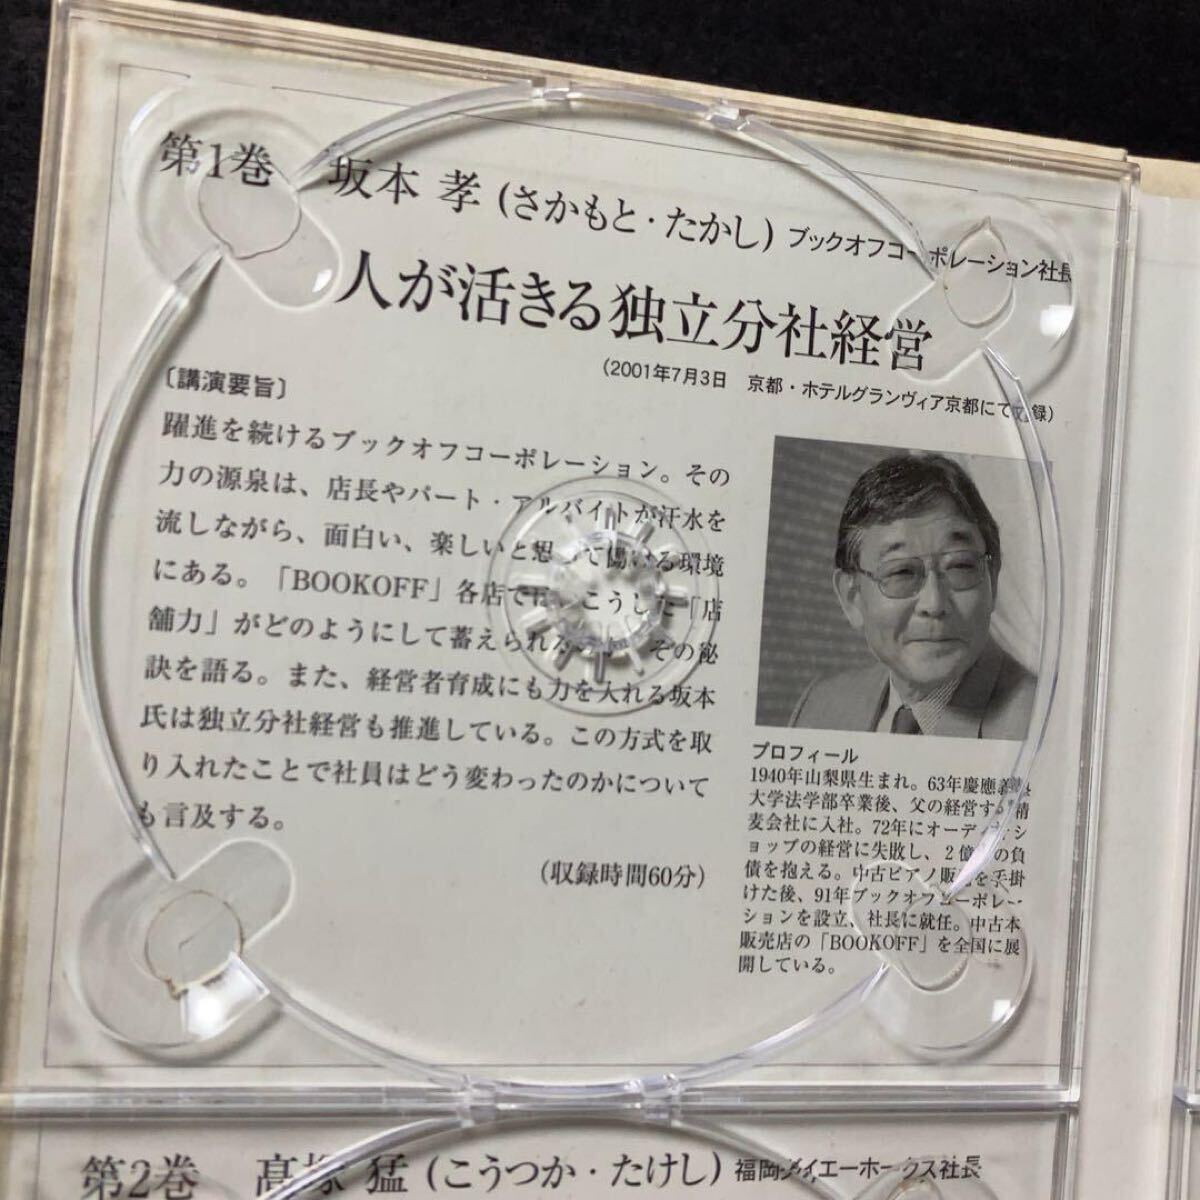 第1巻 坂本 孝(さかもと・たかし)ブックオフコーポレーション社長
人が活きる独立分社経営
(2001年7月3日 京都・ホテルグランヴィア京都にて 録)
〔講演要旨〕
躍進を続けるブックオフコーポレーション。その
力の源泉は、店長やパート・アルバイトが汗水を
流しながら、面白い、楽しいと思って働ける環境
にある。「BOOKOFF」各店では、こうした「店
舗力」がどのようにして蓄えられ その秘
訣を語る。また、経営者育成にも力を入れる坂本
氏は独立分社経営も推進している。この方式を取
り入れたことで社員はどう変わったのかについて
も言及する。
(収録時間60分)
プロフィール
1940年山梨県生まれ。63年慶應義塾
大学法学部卒業後、父の経営する精
麦会社に入社。72年にオーディオシ
ョップの経営に失敗し、2億 の負
債を抱える。中古ピアノ販売を手掛
けた後、91年ブックオフコーポレー
ションを設立、社長に就任。中古本
販売店の「BOOKOFF」を全国に展
開している。
第2巻 髙塚 猛(こうつか・たけし)福岡ダイエーホークス社長